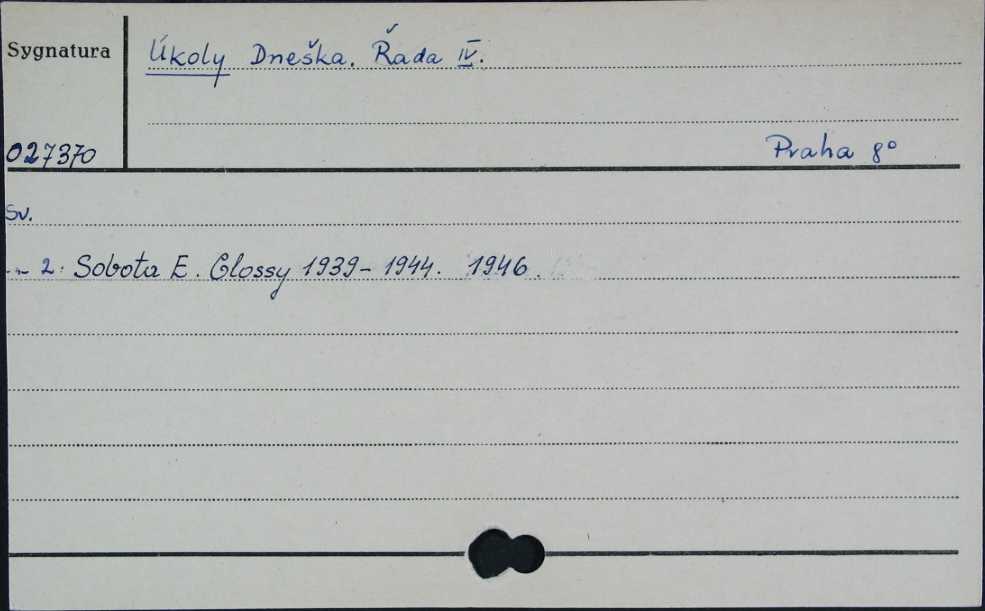 Sygnatura
Úkoly Dneška. Řada IV.
027370
Praha 8°
Sv.
-"- 2. Sobota E. Glossy 1939-1944. 1946.